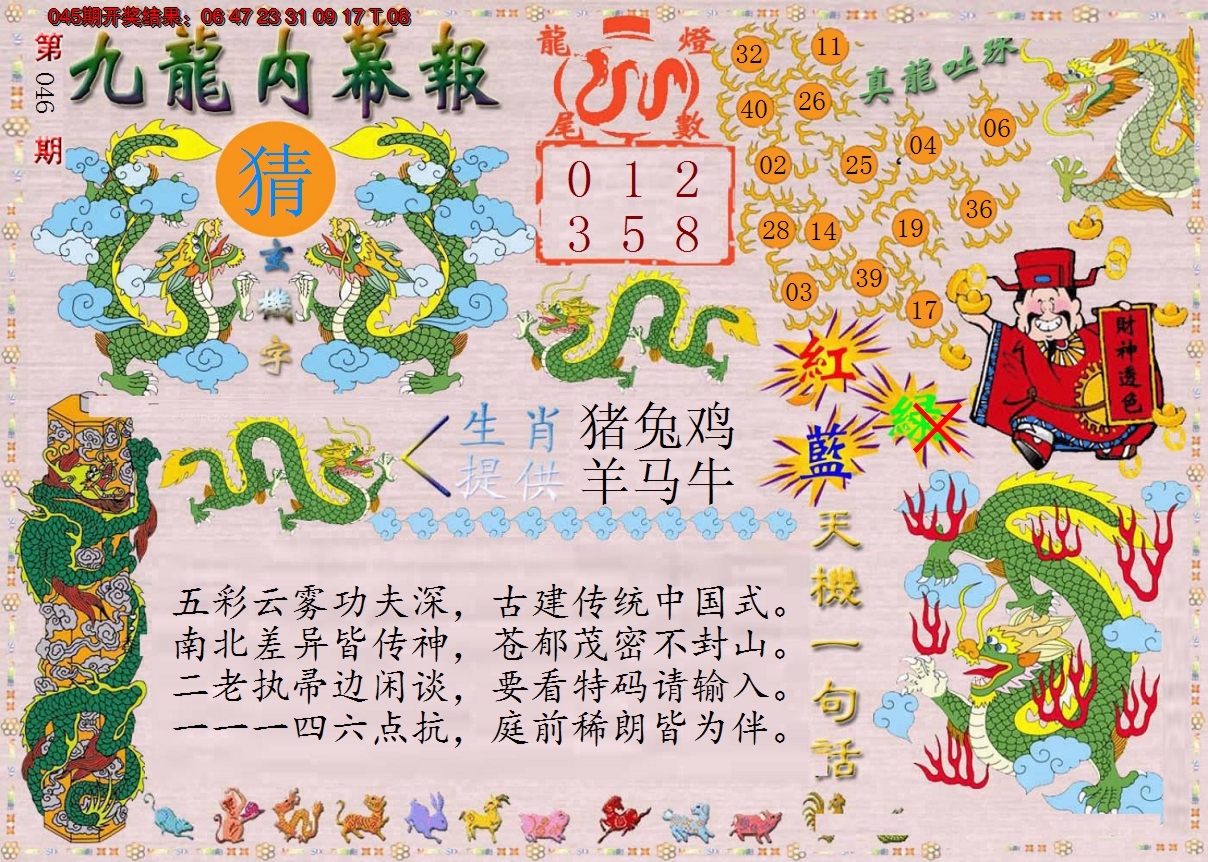 045期开奖结果：06 47 23 31 09 17 T 08
第046期
九龍内幕報
猜
玄機字
龍燈
尾數
0 1 2
3 5 8
真龍吐珠
32
11
40
26
04
06
02
25
36
28
14
19
39
03
17
紅
綠
藍
財神透色
生肖
提供
猪兔鸡
羊马牛
天機一句話
五彩云雾功夫深，古建传统中国式。
南北差异皆传神，苍郁茂密不封山。
二老执帚边闲谈，要看特码请输入。
一一一四六点抗，庭前稀朗皆为伴。